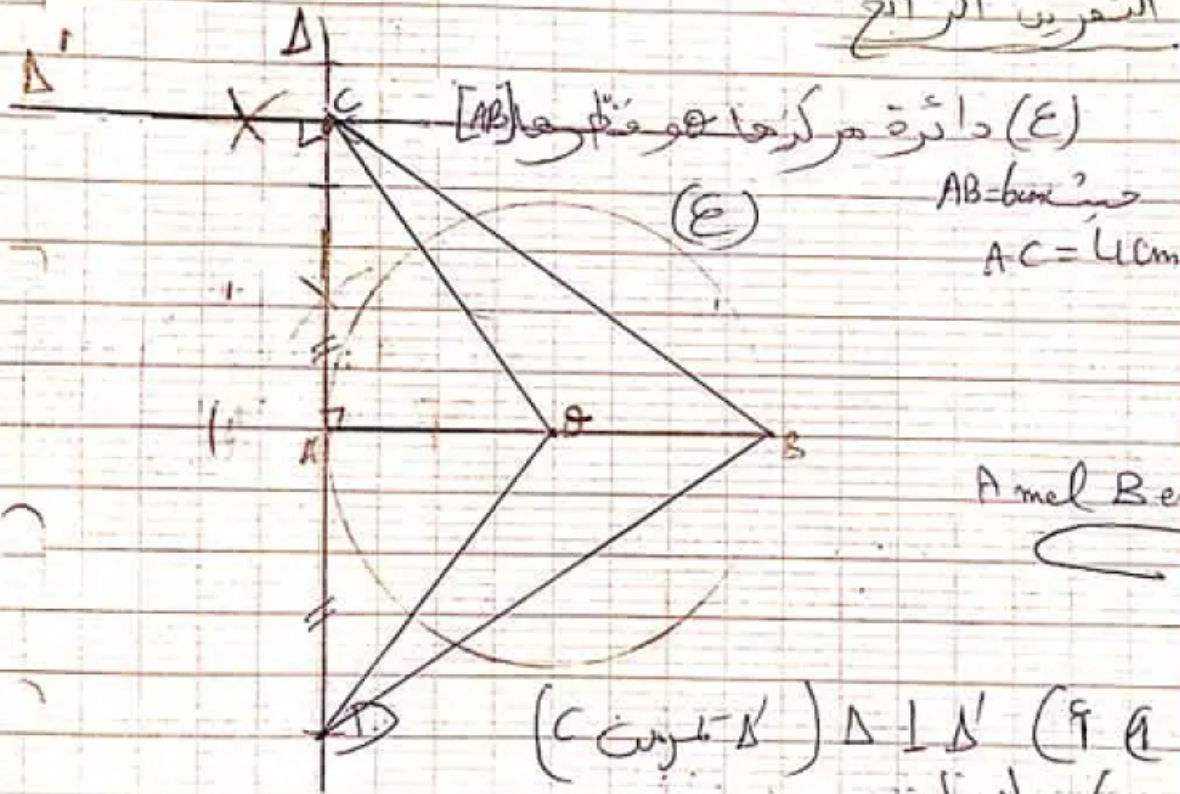 التمرين الرابع
Δ
Δ'
C
(ع) دائرة مركزها O وقطرها [AB]
حيث AB=6cm
(ع)
AC=4cm
A
O
B
Amel Be
D
Δ ⊥ Δ' (C تمر من Δ')